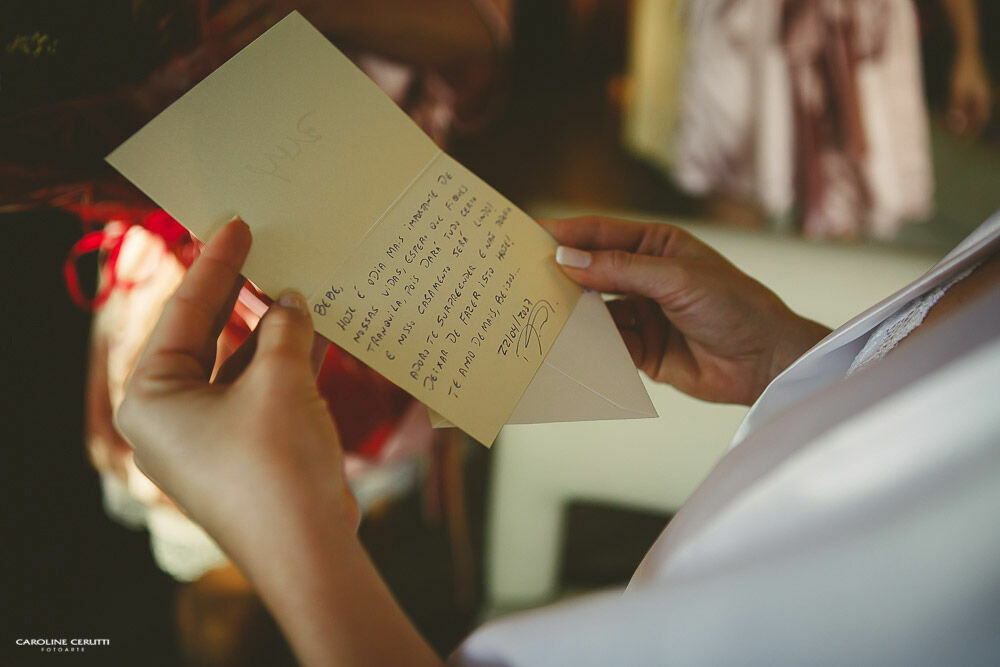 BEBE,
HOJE É O DIA MAIS IMPORTANTE DE
NOSSAS VIDAS, ESPERO QUE FIQUES
TRANQUILA, POIS DARÁ TUDO CERTO
E NOSSO CASAMENTO SERÁ LINDO!
ADORO TE SURPREENDER E NÃO PODERIA
DEIXAR DE FAZER ISTO HOJE!
TE AMO DEMAIS, BEIJOS...
22/04/2007
CAROLINE CERUTTI
FOTOARTE